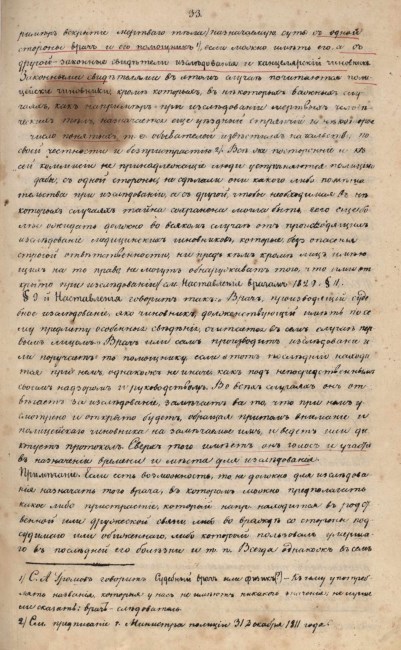 33.
вскрытіи мертваго тѣла) назначаемую суть съ одной
стороны врачъ и его помощникъ¹), если можно имѣть его, а съ
другой – законные свидѣтели изслѣдованія и канцелярскій чиновникъ.
Законными свидѣтелями въ этомъ случаѣ почитаются поли-
цейскіе чиновники; кромѣ которыхъ, въ нѣкоторыхъ важныхъ слу-
чаяхъ, какъ напримѣръ при изслѣдованіи мертвыхъ человѣ-
ческихъ тѣлъ, назначается еще уѣздный стряпчій и нѣкоторое
число понятыхъ, т. е. обывателей извѣстныхъ начальству по
своей честности и безпристрастію²). Всѣ же посторонніе и къ
сей коммиссіи не принадлежащіе люди устраняются полиціею
дабы, съ одной стороны, не сдѣлали они какого либо помѣша-
тельства при изслѣдованіи, а съ другой, чтобы необходимая въ нѣ-
которыхъ случаяхъ тайна сохранена могла быть, чего особен-
но ожидать должно во всякомъ случаѣ отъ производящихъ
изслѣдованіе медицинскихъ чиновниковъ, которые подъ опасеніемъ
строгой отвѣтственности, ни предъ кѣмъ кромѣ лицъ имѣю-
щихъ на то право не могутъ обнаруживать того, что ими от-
крыто при изслѣдованіи см. Наставленіе врачамъ 1829. § 11.
§ 9 й Наставленія говоритъ такъ: Врачъ, производящій суде-
бное изслѣдованіе, яко чиновникъ долженствующій имѣть по се-
му предмету особенныя свѣдѣнія, считается въ семъ случаѣ пер-
вымъ лицомъ. Врачъ или самъ производитъ изслѣдованіе и-
ли поручаетъ то помощнику если этотъ послѣдній находи-
тся при немъ, однакожъ не иначе какъ подъ непосредственнымъ
своимъ надзоромъ и руководствомъ. Во всѣхъ случаяхъ онъ от-
вѣчаетъ за изслѣдованіе, замѣчаетъ все то что при немъ у-
смотрено и открыто будетъ, обращая притомъ вниманіе и
полицейскаго чиновника на замѣчаемое имъ, и ведетъ или ди-
ктуетъ протоколъ. Сверхъ того имѣетъ онъ голосъ и участіе
въ назначеніи времени и мѣста для изслѣдованія.
Примѣчаніе. Если есть возможность, то не должно для изслѣдова-
нія назначать того врача, въ которомъ можно предполагать
какое либо пристрастіе, который напр. находится въ родст-
венной или дружеской связи либо во враждѣ со стороною под-
судимаго или обиженнаго, либо который пользовалъ умерша-
го въ послѣдней его болѣзни и т. п. Всегда однакожъ въ семъ
1) С. А. Громовъ говоритъ Судебный врачъ или физикъ(?) –
названія, которыя у насъ не имѣютъ никакого значенія; не лучше
ли сказать: врачъ-слѣдователь.
2) См. предписаніе г. Министра полиціи 31 декабря 1811 года.